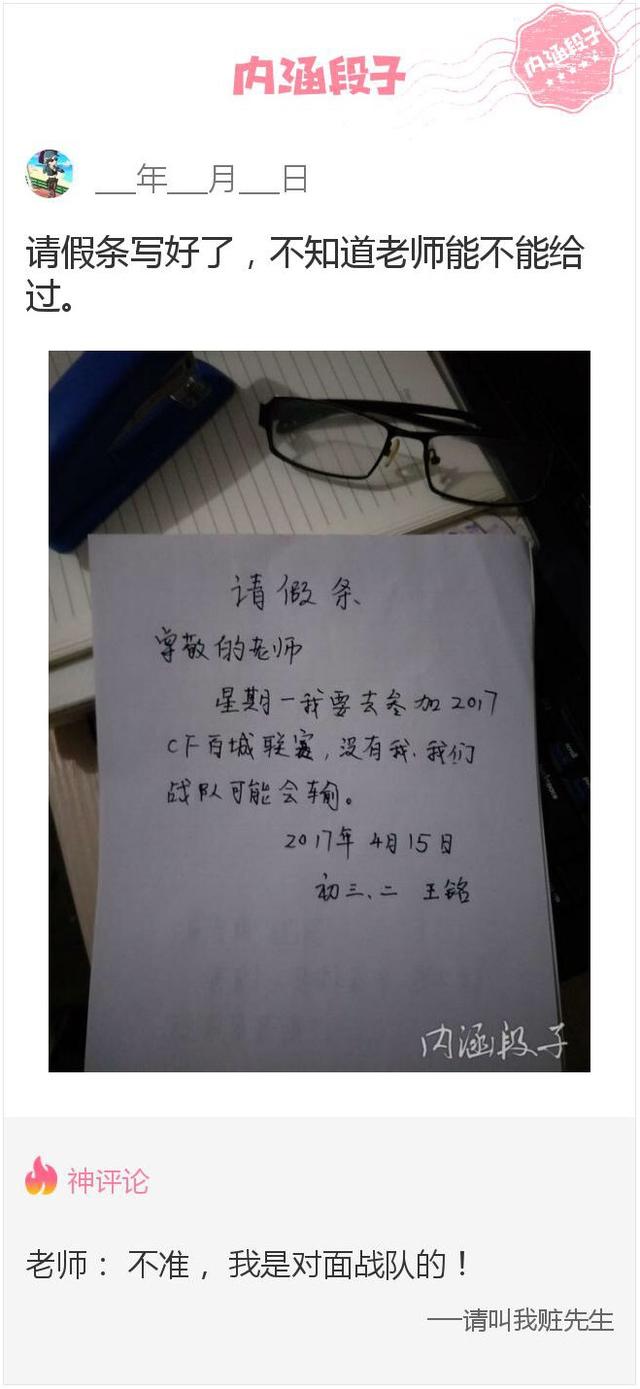 内涵段子
内涵段子
___年___月___日
请假条写好了，不知道老师能不能给
过。
请假条
尊敬的老师
星期一我要去参加2017
CF百城联赛，没有我.我们
战队可能会输。
2017年4月15日
初三、二 王铭
内涵段子
神评论
老师： 不准， 我是对面战队的！
──请叫我赃先生